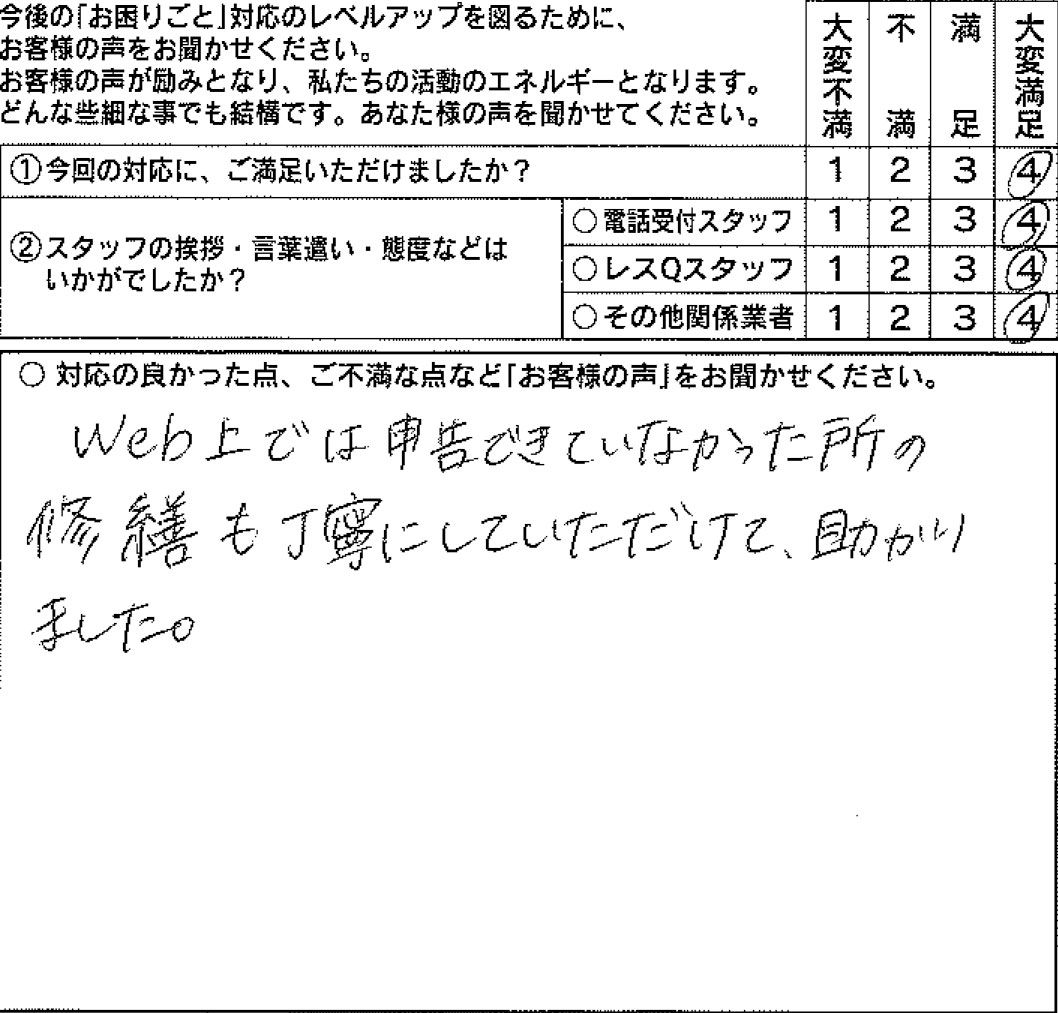 今後の「お困りごと」対応のレベルアップを図るために、
お客様の声をお聞かせください。
お客様の声が励みとなり、私たちの活動のエネルギーとなります。
どんな些細な事でも結構です。あなた様の声を聞かせてください。
大変不満 不満 満足 大変満足
①今回の対応に、ご満足いただけましたか? 1 2 3 4
②スタッフの挨拶・言葉遣い・態度などは
いかがでしたか?
○電話受付スタッフ 1 2 3 4
○レスQスタッフ 1 2 3 4
○その他関係業者 1 2 3 4
○ 対応の良かった点、ご不満な点など「お客様の声」をお聞かせください。
Web上では申告できていなかった所の
修繕も丁寧にしていただけて、助かり
ました。